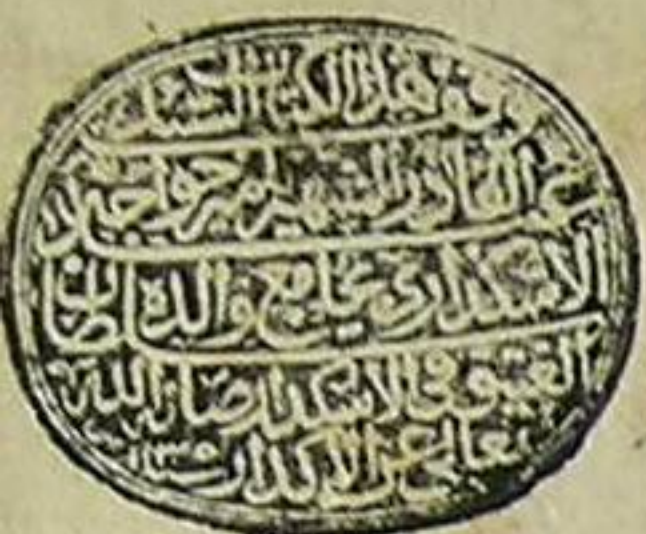 وقف هذا الكتاب السيد
عبد القادر الشهير بامير خواجه
الاسكداري بجامع والده سلطان
العتيق في الاسكدار صانه الله
تعالى عن الاكدار سنة ١٢٣٥